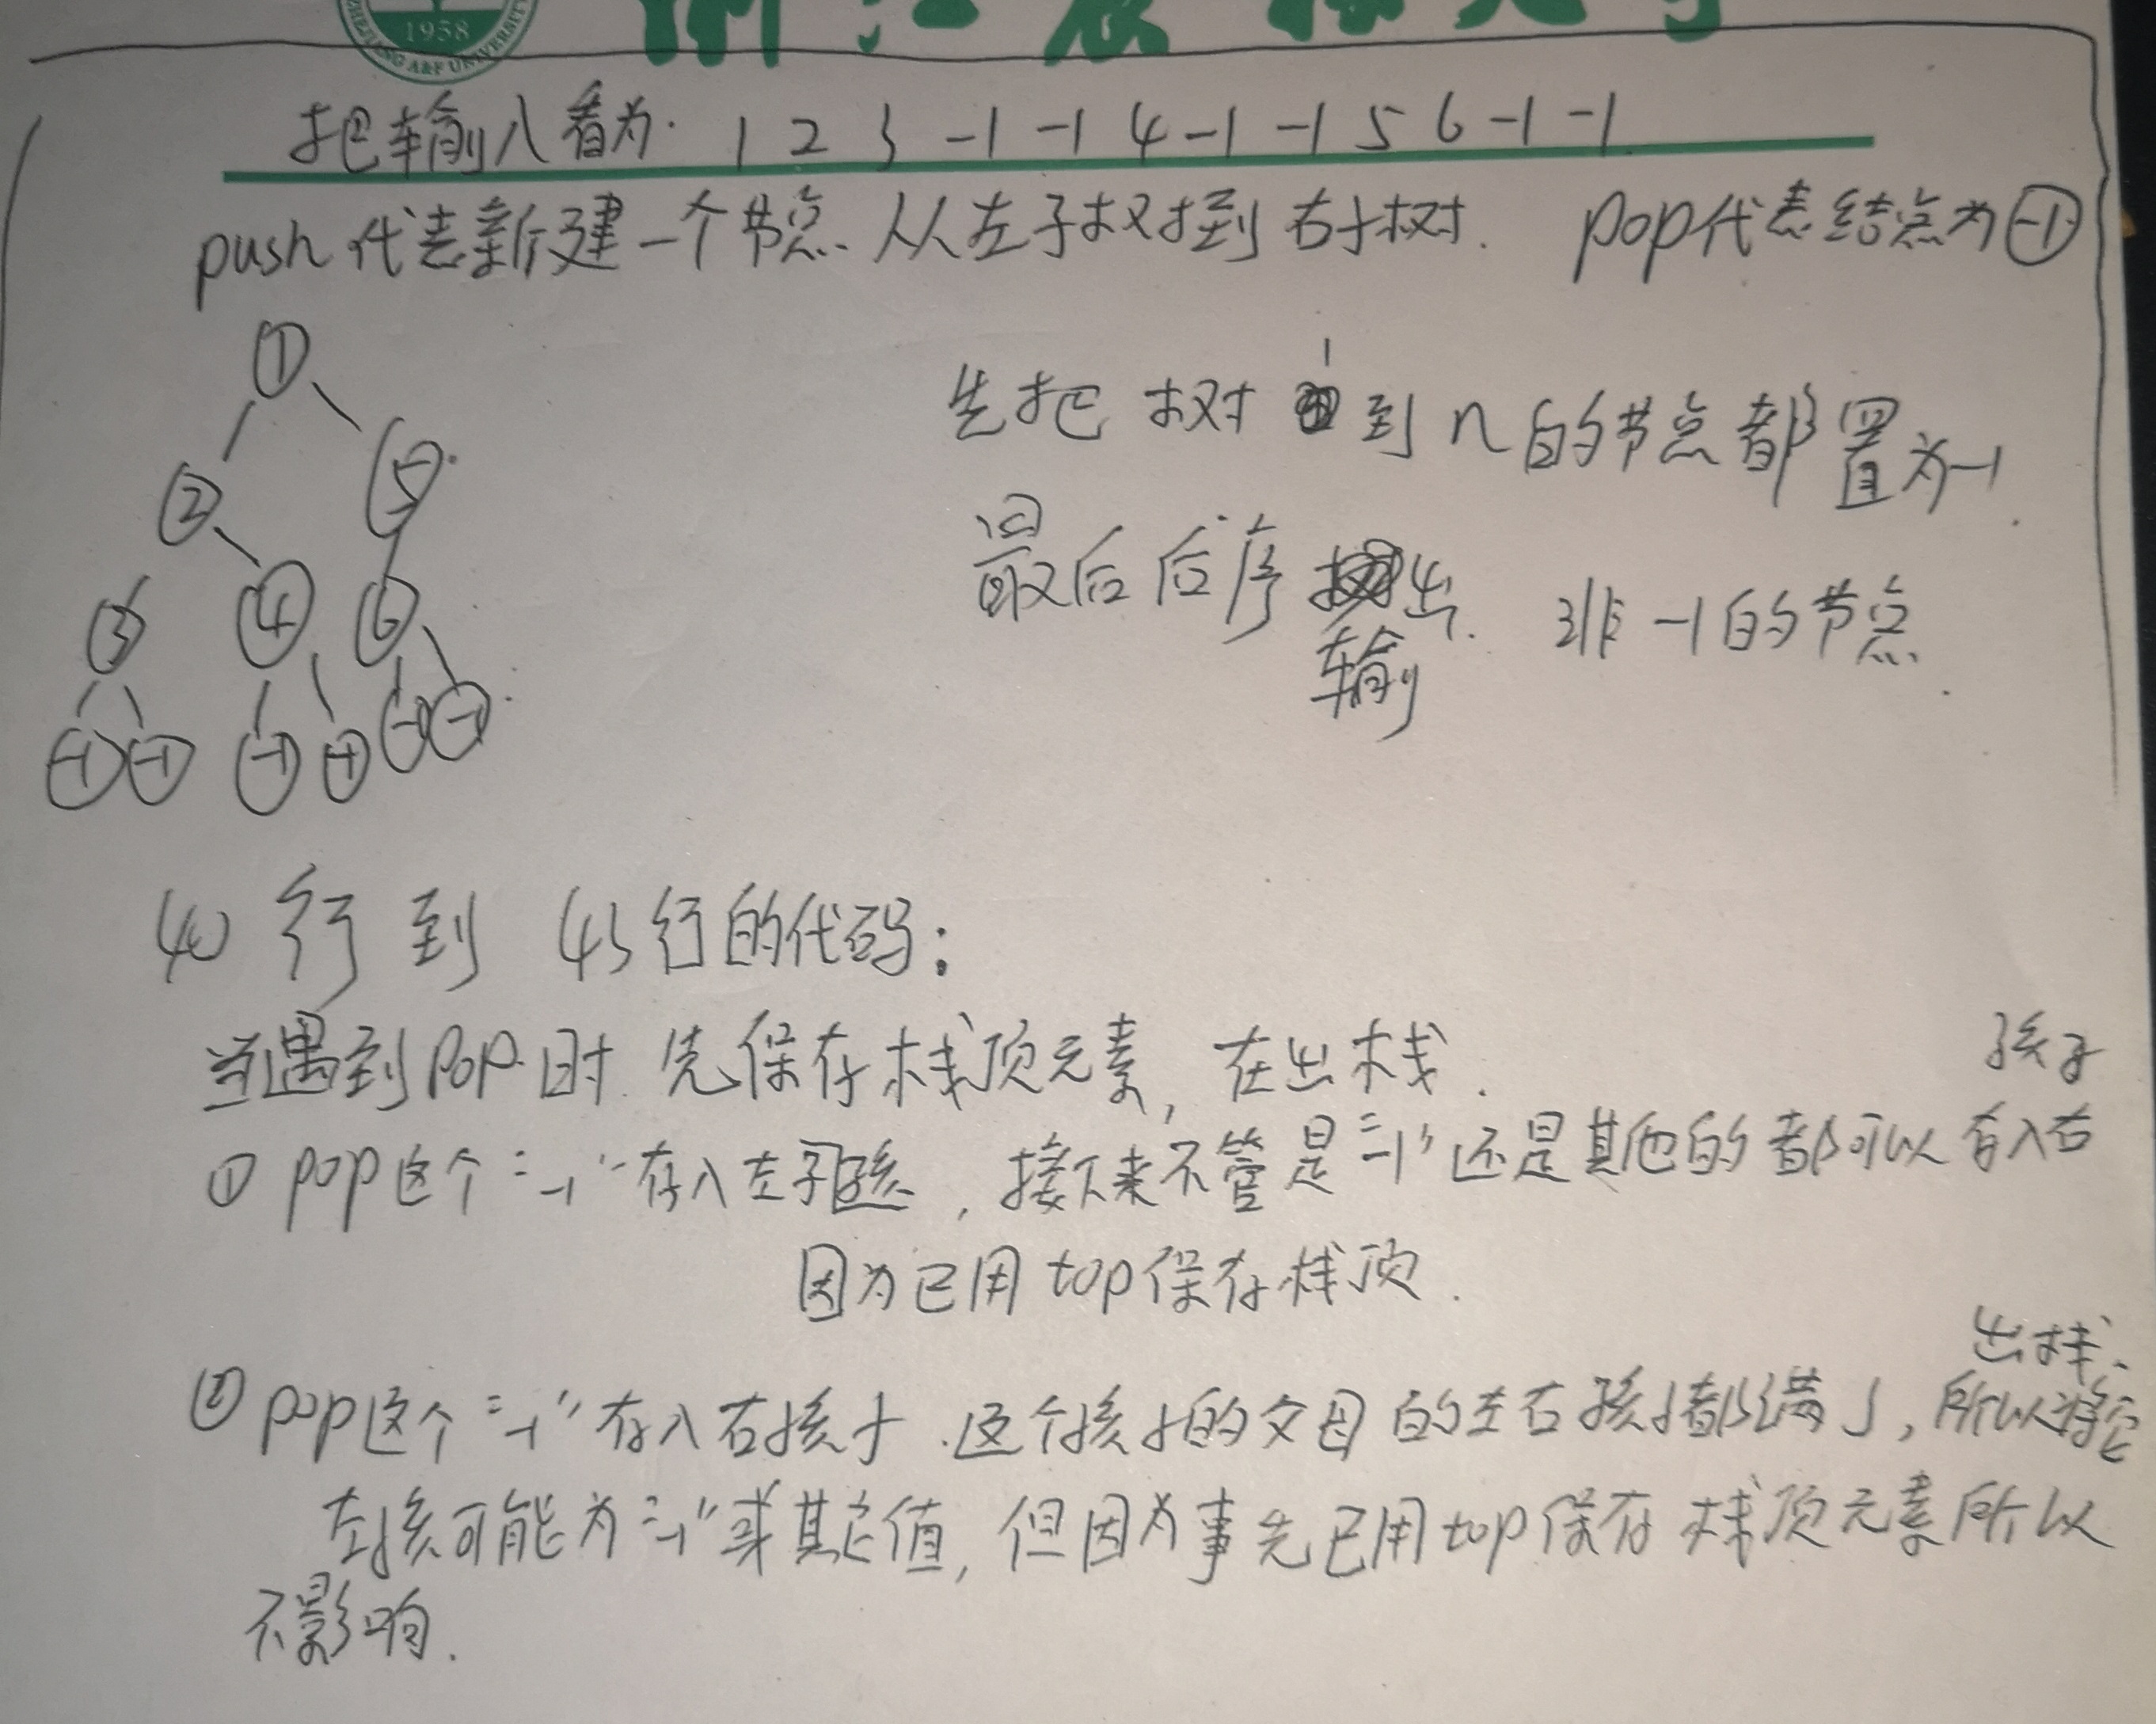 1958
ZHEJIANG A&F UNIVERSITY
把输入看为: 1 2 3 -1 -1 4 -1 -1 5 6 -1 -1
push代表新建一个节点 从左子树到右子树. pop代表结点为-1
1
2 5
3 4 6
-1 -1 -1 -1 -1 -1
先把 树 1到n的节点都置为-1.
最后后序输出. 非-1的节点.
40行到 43行的代码:
当遇到pop时 先保存栈顶元素, 在出栈.
① pop这个"-1"存入左孩, 接下来不管是"-1"还是其他的都可以存入右孩子
因为已用top保存栈顶.
② pop这个"-1"存入右孩子.这个孩子的父母的左右孩子都满了, 所以将它出栈、
左孩可能为"-1"或其它值, 但因为事先已用top保存栈顶元素所以
不影响.